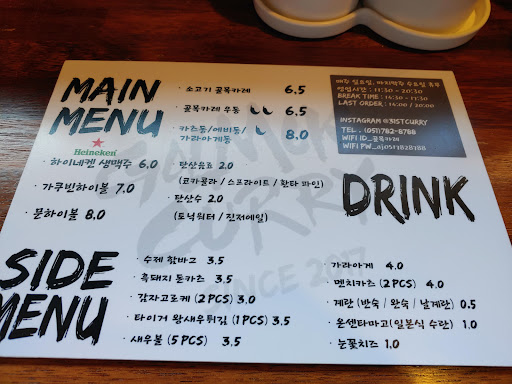 MAIN
MENU
· 소고기 골목카레 6.5
· 골목카레 우동 6.5
· 카츠동/에비동/
가라아게동 8.0
매주 일요일, 마지막주 수요일 휴무
영업시간 : 11:30 - 20:30
BREAK TIME : 14:30 - 17:30
LAST ORDER : 14:00 / 20:00
INSTAGRAM @31STCURRY
TEL . (051)782-8788
Heineken
· 하이네켄 생맥주 6.0
· 가쿠빈하이볼 7.0
· 문하이볼 8.0
· 탄산음료 2.0
(코카콜라 / 스프라이트 / 환타 파인)
· 탄산수 2.0
(토닉워터 / 진저에일)
DRINK
SIDE
MENU
· 수제 함바그 3.5
· 흑돼지 돈카츠 3.5
· 감자고로케 (2 PCS) 3.0
· 타이거 왕새우튀김 (1 PCS) 3.5
· 새우볼 (5 PCS) 3.5
· 가라아게 4.0
· 멘치카츠 (2 PCS) 4.0
· 계란 (반숙 / 완숙 / 날계란) 0.5
· 온센타마고 (일본식 수란) 1.0
· 눈꽃치즈 1.0
CURRY
SINCE 2017